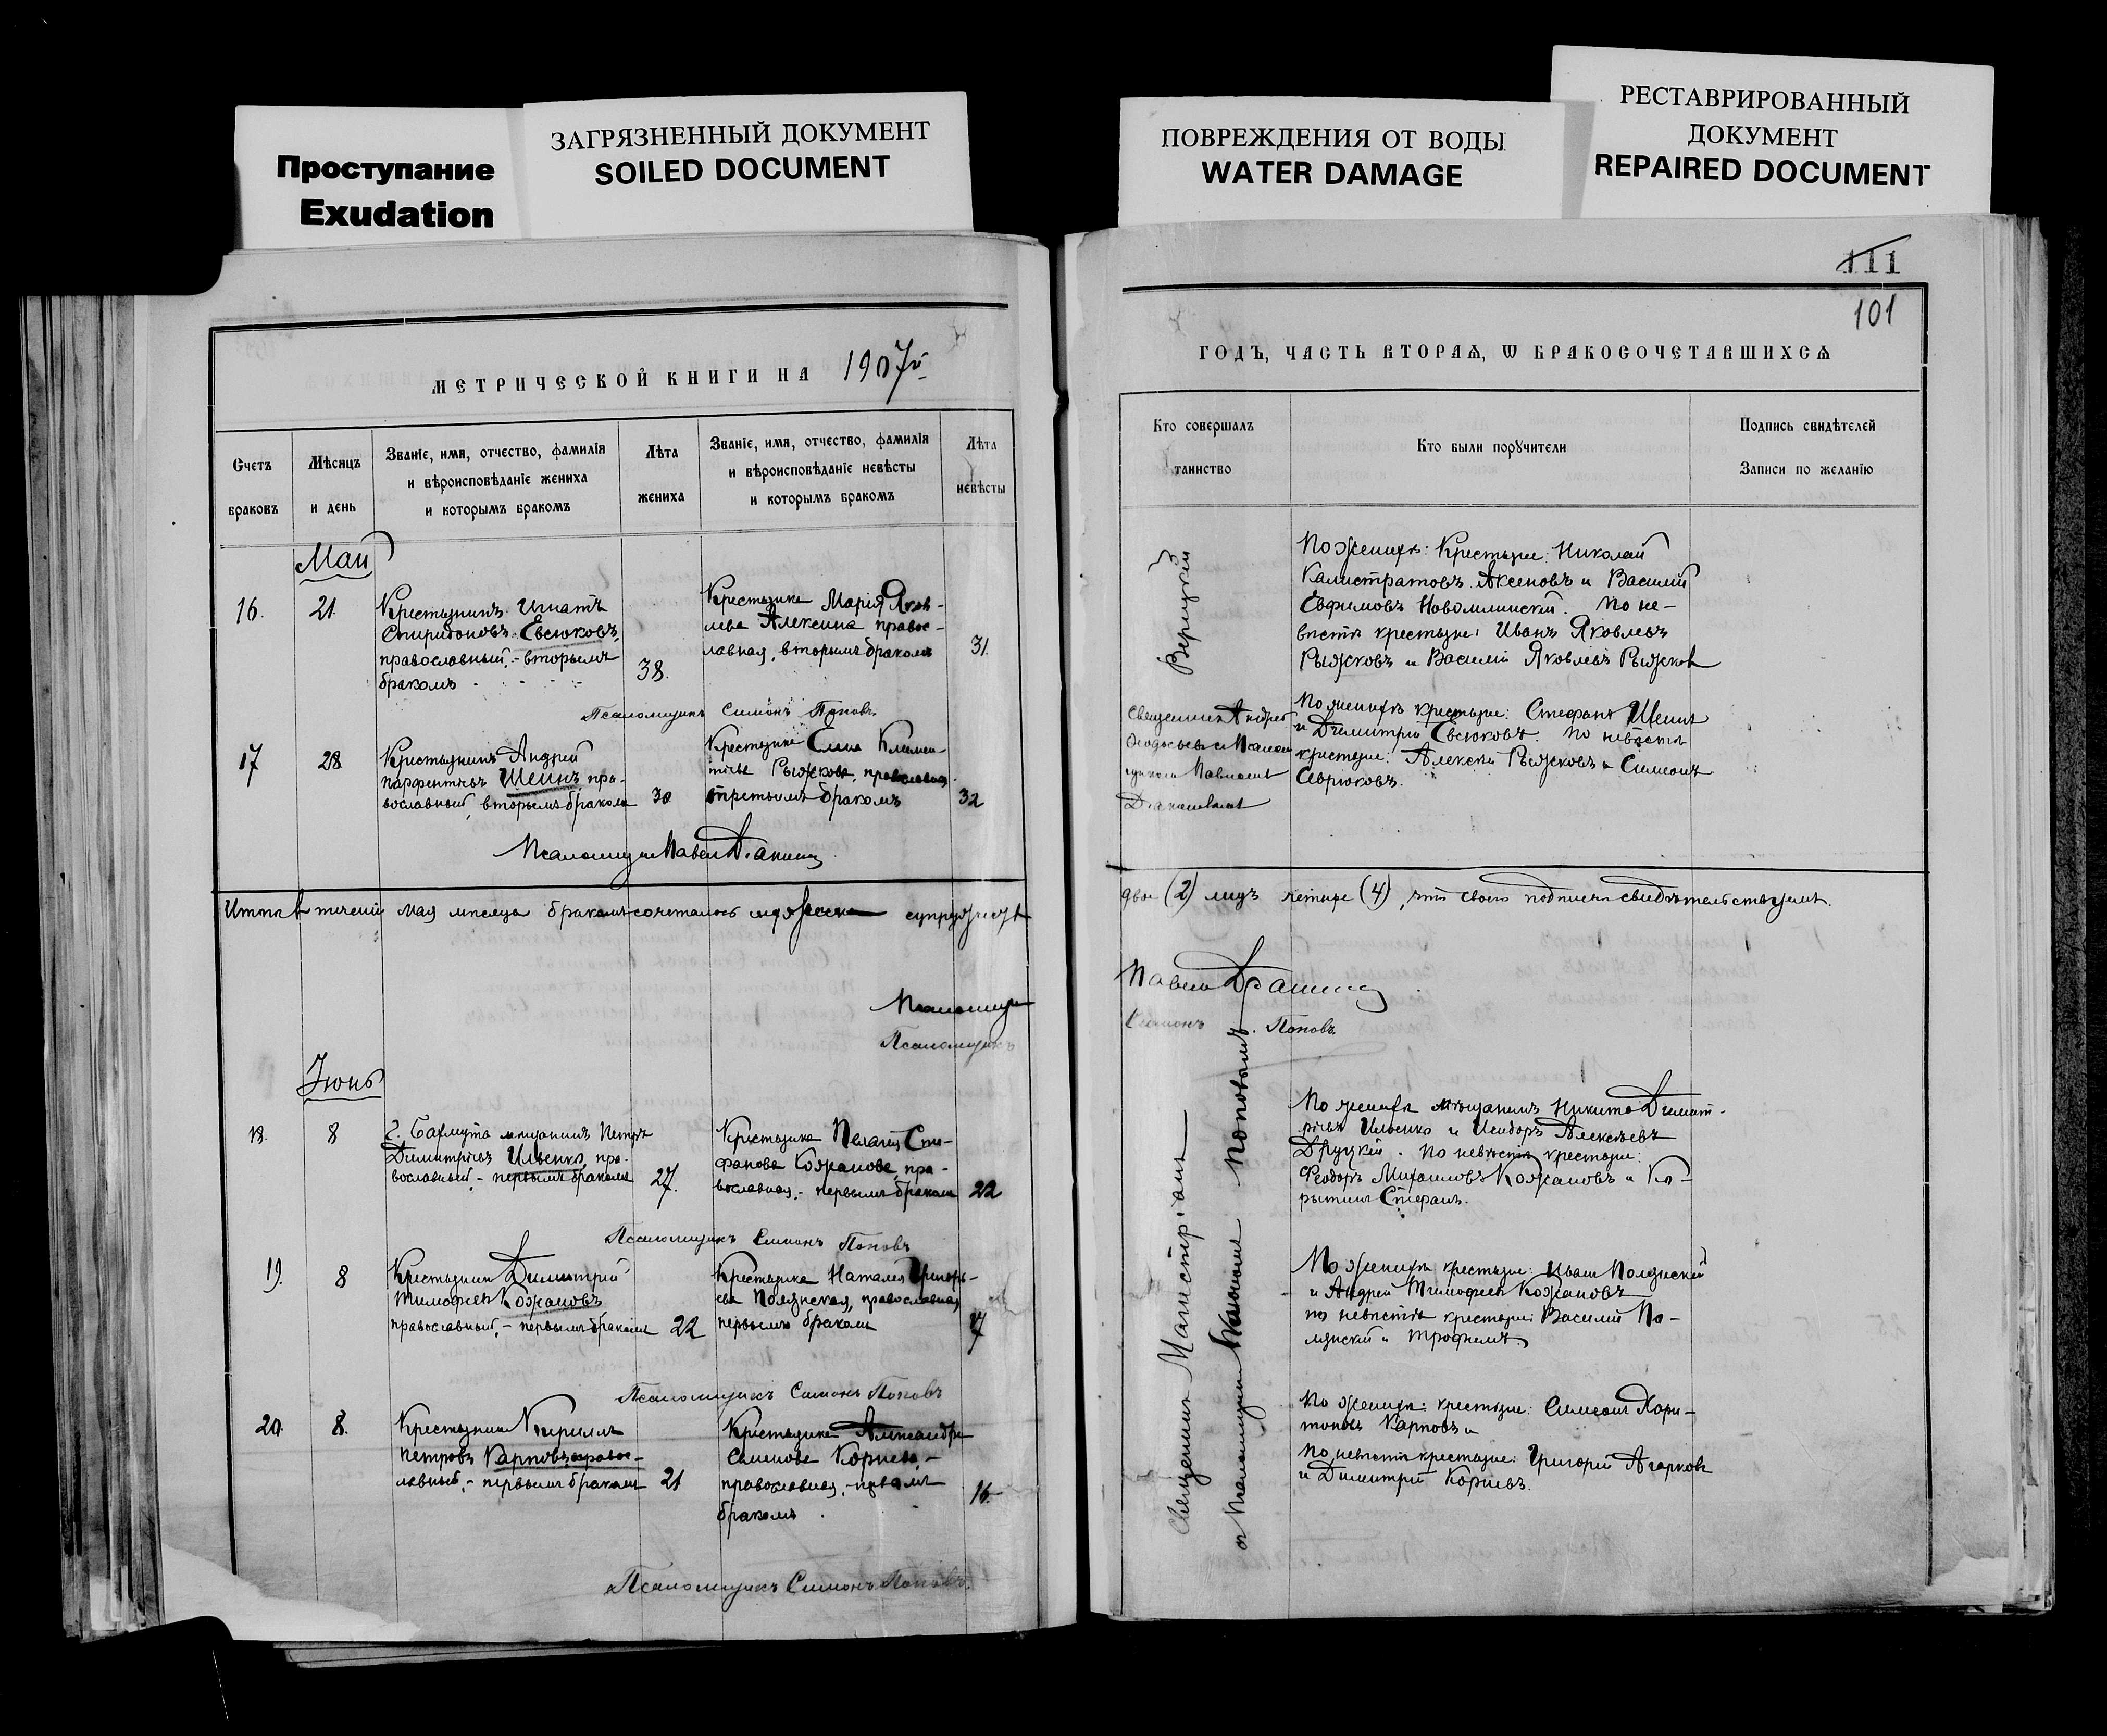 Проступание
Exudation
ЗАГРЯЗНЕННЫЙ ДОКУМЕНТ
SOILED DOCUMENT
ПОВРЕЖДЕНИЯ ОТ ВОДЫ
WATER DAMAGE
РЕСТАВРИРОВАННЫЙ
ДОКУМЕНТ
REPAIRED DOCUMENT
МЕТРИЧЕСКОЙ КНИГИ НА 1907й
Счетъ
браковъ
Мѣсяцъ
и день
Званіе, имя, отчество, фамилія
и вѣроисповѣданіе жениха
и которымъ бракомъ
Лѣта
жениха
Званіе, имя, отчество, фамилія
и вѣроисповѣданіе невѣсты
и которымъ бракомъ
Лѣта
невѣсты
Май
16. 21.
Крестьянинъ Игнатъ
Спиридоновъ Евсюковъ,
православный, - вторымъ
бракомъ
38.
Крестьянка Марія Яков-
лева Алексина правос-
лавная, вторымъ бракомъ
31.
Псаломщикъ Симонъ Поповъ.
17 28
Крестьянинъ Андрей
Парфентіевъ Шеинъ, пра-
вославный, вторымъ бракомъ
30
Крестьянка Елена Клемен-
тіева Рыжкова, православная
третьимъ бракомъ
32
Псаломщикъ Павелъ
Итого въ теченіи мая мѣсяца бракомъ сочеталось супружествъ
Псаломщикъ
Псаломщикъ
Іюнь
18. 8
г. Бахмута мещанинъ Петръ
Димитріевъ Ильенко, пра-
вославный, - первымъ бракомъ
27.
Крестьянка Пелагия Сте-
фанова Кожанова, пра-
вославная, - первымъ бракомъ
22
Псаломщикъ Симонъ Поповъ
19. 8
Крестьянинъ Димитрий
Тимофеев Кожановъ,
православный, - первымъ бракомъ
22
Крестьянка Наталия Григорь-
ева Полянская, православная
первымъ бракомъ
17
Псаломщикъ Симонъ Поповъ
20. 8.
Крестьянинъ Кириллъ
Петровъ Карповъ, правос-
лавный, - первымъ бракомъ
21
Крестьянка Александра
Семенова Корнева, -
православная, - первымъ
бракомъ
16.
Псаломщикъ Симонъ Поповъ.
111
101
ГОДЪ, ЧАСТЬ ВТОРАЯ, Ѡ БРАКОСОЧЕТАВШИХСЯ
Кто совершалъ
таинство
Кто были поручители
Подпись свидѣтелей
Записи по желанію
Вержуцкій
По женихѣ: Крестьяне: Николай
Калистратовъ Аксеновъ и Василий
Евфимовъ Новомлинский. По не-
вѣстѣ крестьяне: Иванъ Яковлевъ
Рыжковъ и Василий Яковлевъ Рыжков
Священник Андрей
и Псалом
щикомъ Павломъ
По женихѣ крестьяне: Стефанъ Шеинъ
и Димитрий Евсюковъ. По невѣстѣ
крестьяне: Алексѣй Рыжковъ и Симеонъ
Севрюковъ.
двое (2) лицъ четыре (4), что своею подписью свидѣтельствуемъ.
Павелъ
Симонъ Поповъ
Священникъ
и Псаломщикомъ Поповымъ
По женихѣ мѣщанинъ Никита Димит-
ріевъ Ильенко и Исидоръ Алексѣевъ
Друцкій. По невѣстѣ крестьяне:
Феодоръ Михаиловъ Кожановъ и Ко-
рытинъ Стефанъ.
По женихѣ крестьяне: Иванъ Полянский
и Андрей Тимофеев Кожановъ
по невѣстѣ крестьяне: Василий По-
лянский и Трофимъ.
По женихѣ: крестьяне: Симеонъ Хари-
тоновъ Карповъ и
По невѣстѣ крестьяне: Григорий Агарковъ
и Димитрий Корневъ.